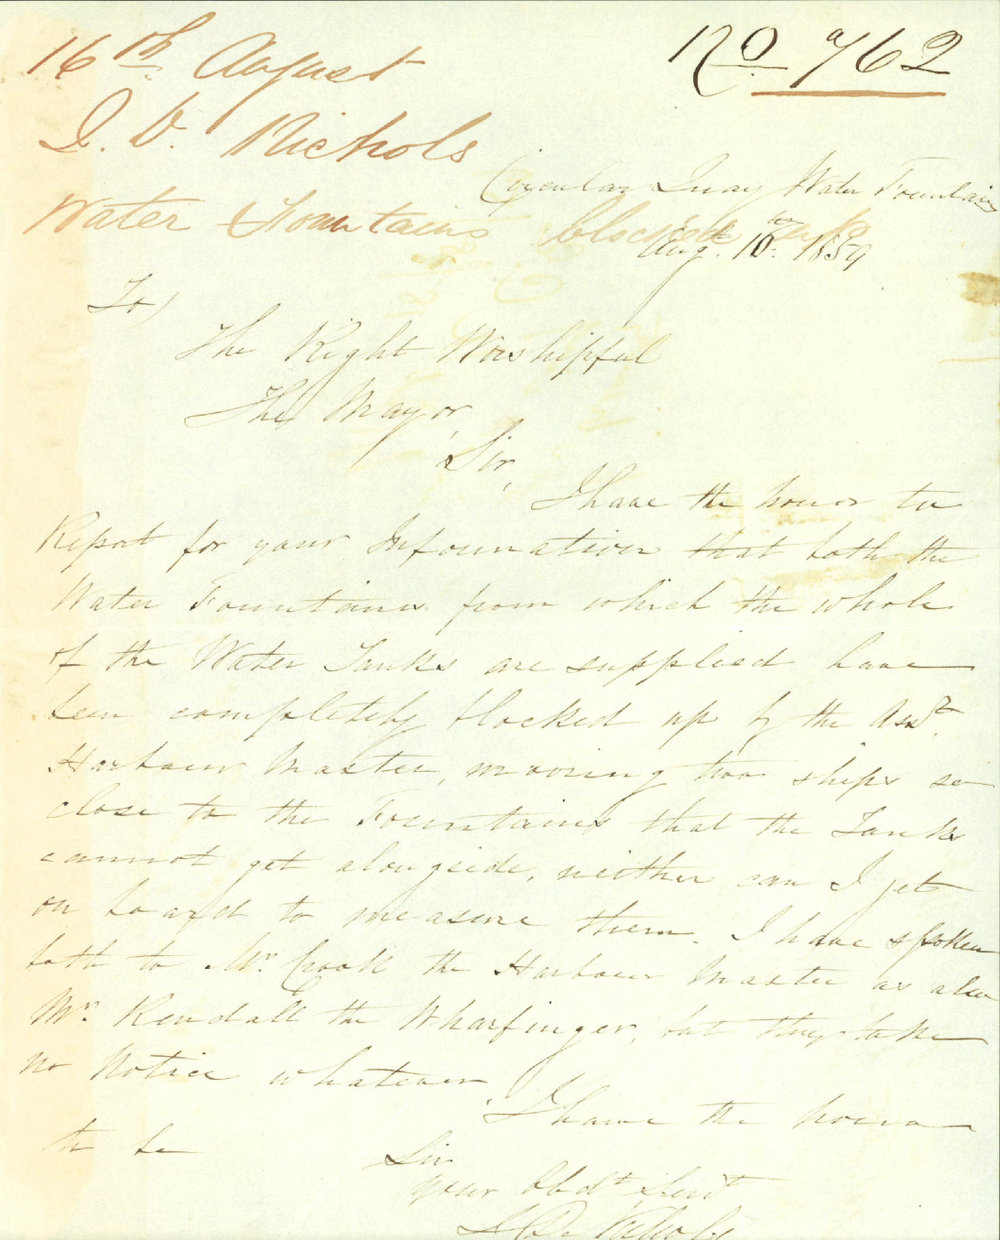 16th August
No 762
J. V. Nichols
Circular Quay Water Fountains
Water Fountains blocked up
Augt. 16th 1859
To)
The Right Worshipful
The Mayor,
Sir,
I have the honor to
Report for your Information that both the
Water Fountains from which the whole
of the Water Tanks are supplied have
been completely blocked up by the Asst.
Harbour Master, mooring two ships so
close to the Fountains that the Tanks
cannot get alongside, neither can I get
on board to measure them. I have spoken
both to Mr. Crook the Harbour Master as also
Mr. Kendall the Wharfinger, but they take
no Notice whatever
I have the honor
to be
Sir
your Obdt. Servt
Nichols